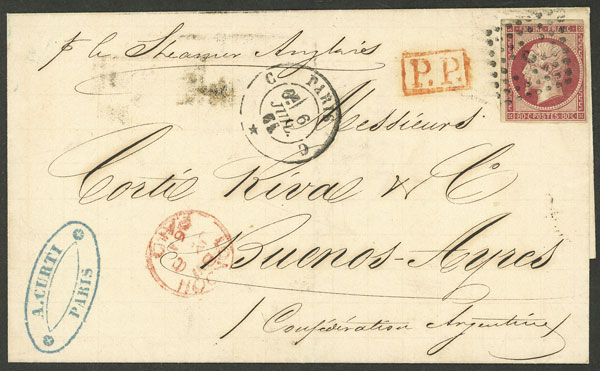 p. le Steamer Anglais
P.P.
80 C POSTES 80 C
PARIS
6
JUIL.
Messieurs
Corti Riva & Cº
Buenos-Ayres
/ Confédération Argentine /
A. CURTI
PARIS